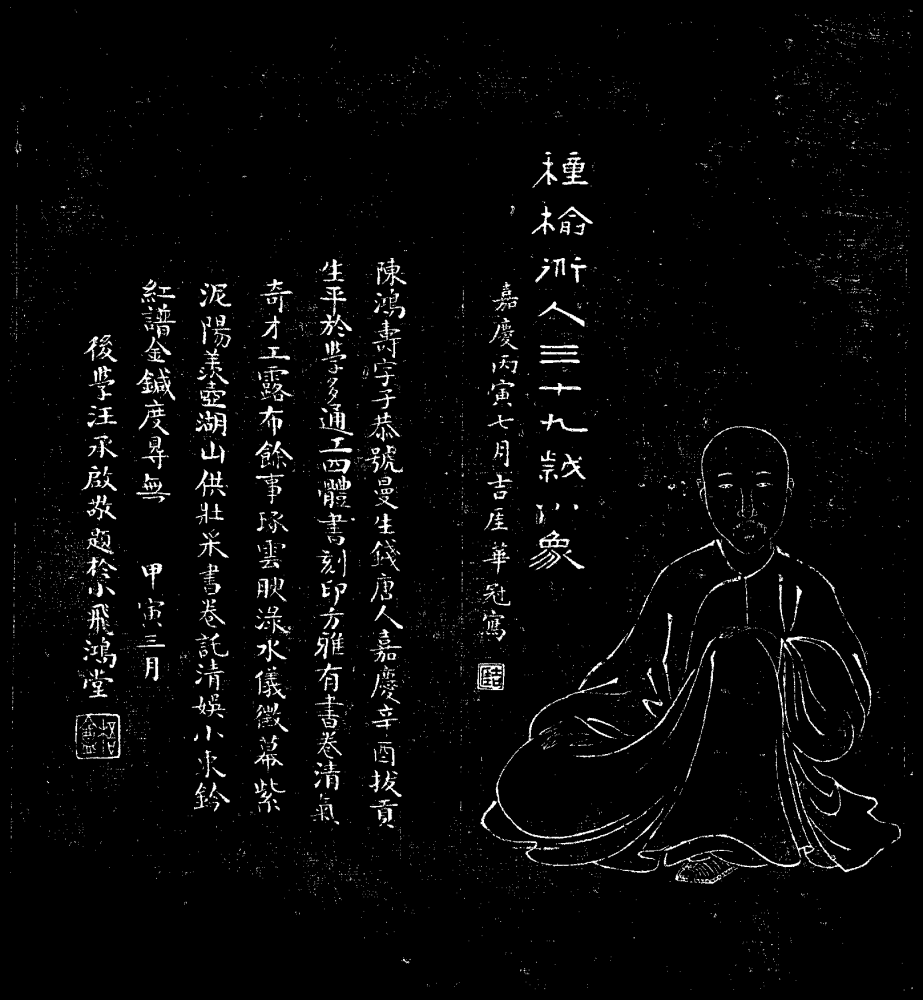 種榆仙人三十九歲小象
嘉慶丙寅七月吉厓華冠寫
陳鴻壽字子恭號曼生錢唐人嘉慶辛酉拔貢
生平於學多通工四體書刻印方雅有書卷清氣
奇才工露布餘事琢雲腴淥水儀徵幕紫
泥陽羨壺湖山供壯采書卷託清娛小朱鈐
紅譜金鍼度尋無 甲寅三月
後學汪承啟敬題於飛鴻堂